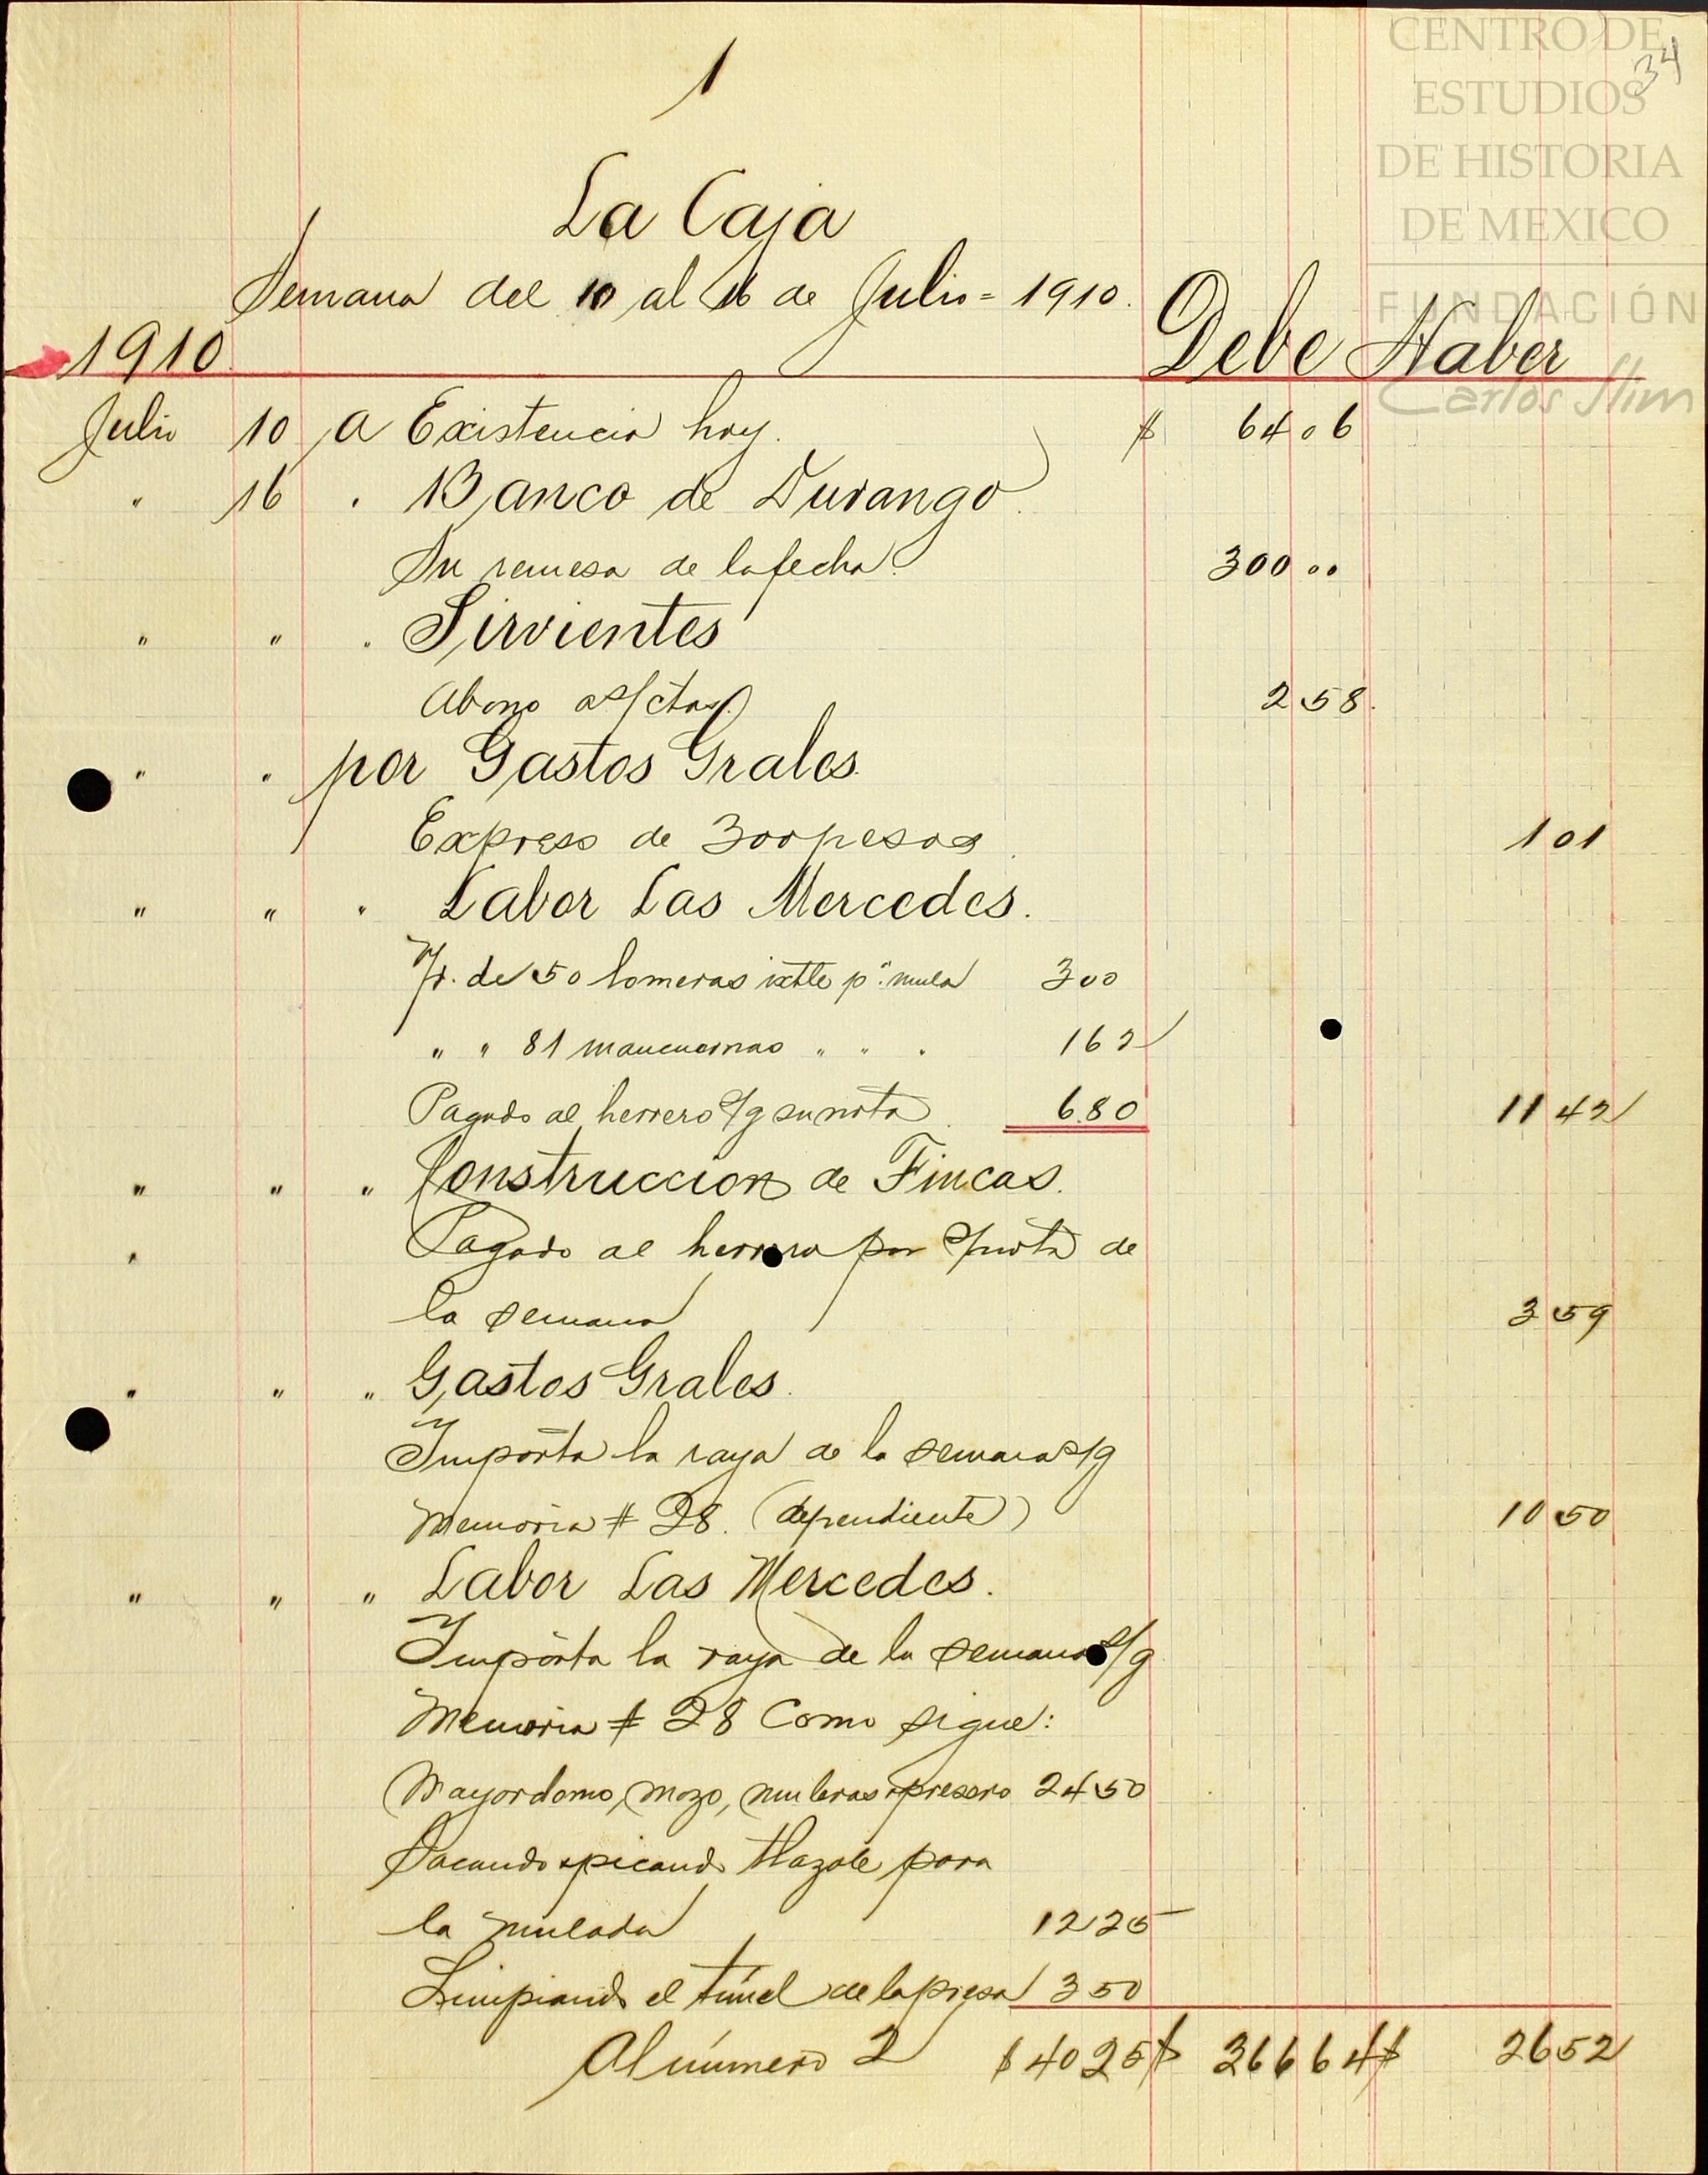 CENTRO DE
ESTUDIOS
DE HISTORIA
DE MEXICO
FUNDACIÓN
Carlos Slim
34
1
La Caja
Semana del 10 al 16 de Julio = 1910.
1910 Debe Haber
Julio 10 A Existencia hoy. $ 64 06
" 16 " Banco de Durango.
Su remesa de la fecha. 300 00
" " " Sirvientes
Abono a s/ctas. 2 58.
" " por Gastos Grales.
Expreso de 300 pesos. 1 01
" " " Labor Las Mercedes.
Yr. de 50 lomeras ixtle pa. mula 3 00
" " 81 mancuernas " " " 1 62
Pagado al herrero s/g su nota. 6.80 11 42
" " " Construccion de Fincas.
" Pagado al herrero por s/nota de
la semana 3 59
" " " Gastos Grales.
Importa la raya de la semana s/g
Memoria # 28. (dependiente) 10 50
" " " Labor Las Mercedes.
Importa la raya de la semana s/g
Memoria # 28 Como sigue:
Mayordomo, mozo, muleros y presero 24 50
Sacando y picando tlazole para
la mulada 12 25
Limpiando el túnel de la presa 3 50
Al número 2 $ 40 25 $ 366 64 $ 26 52